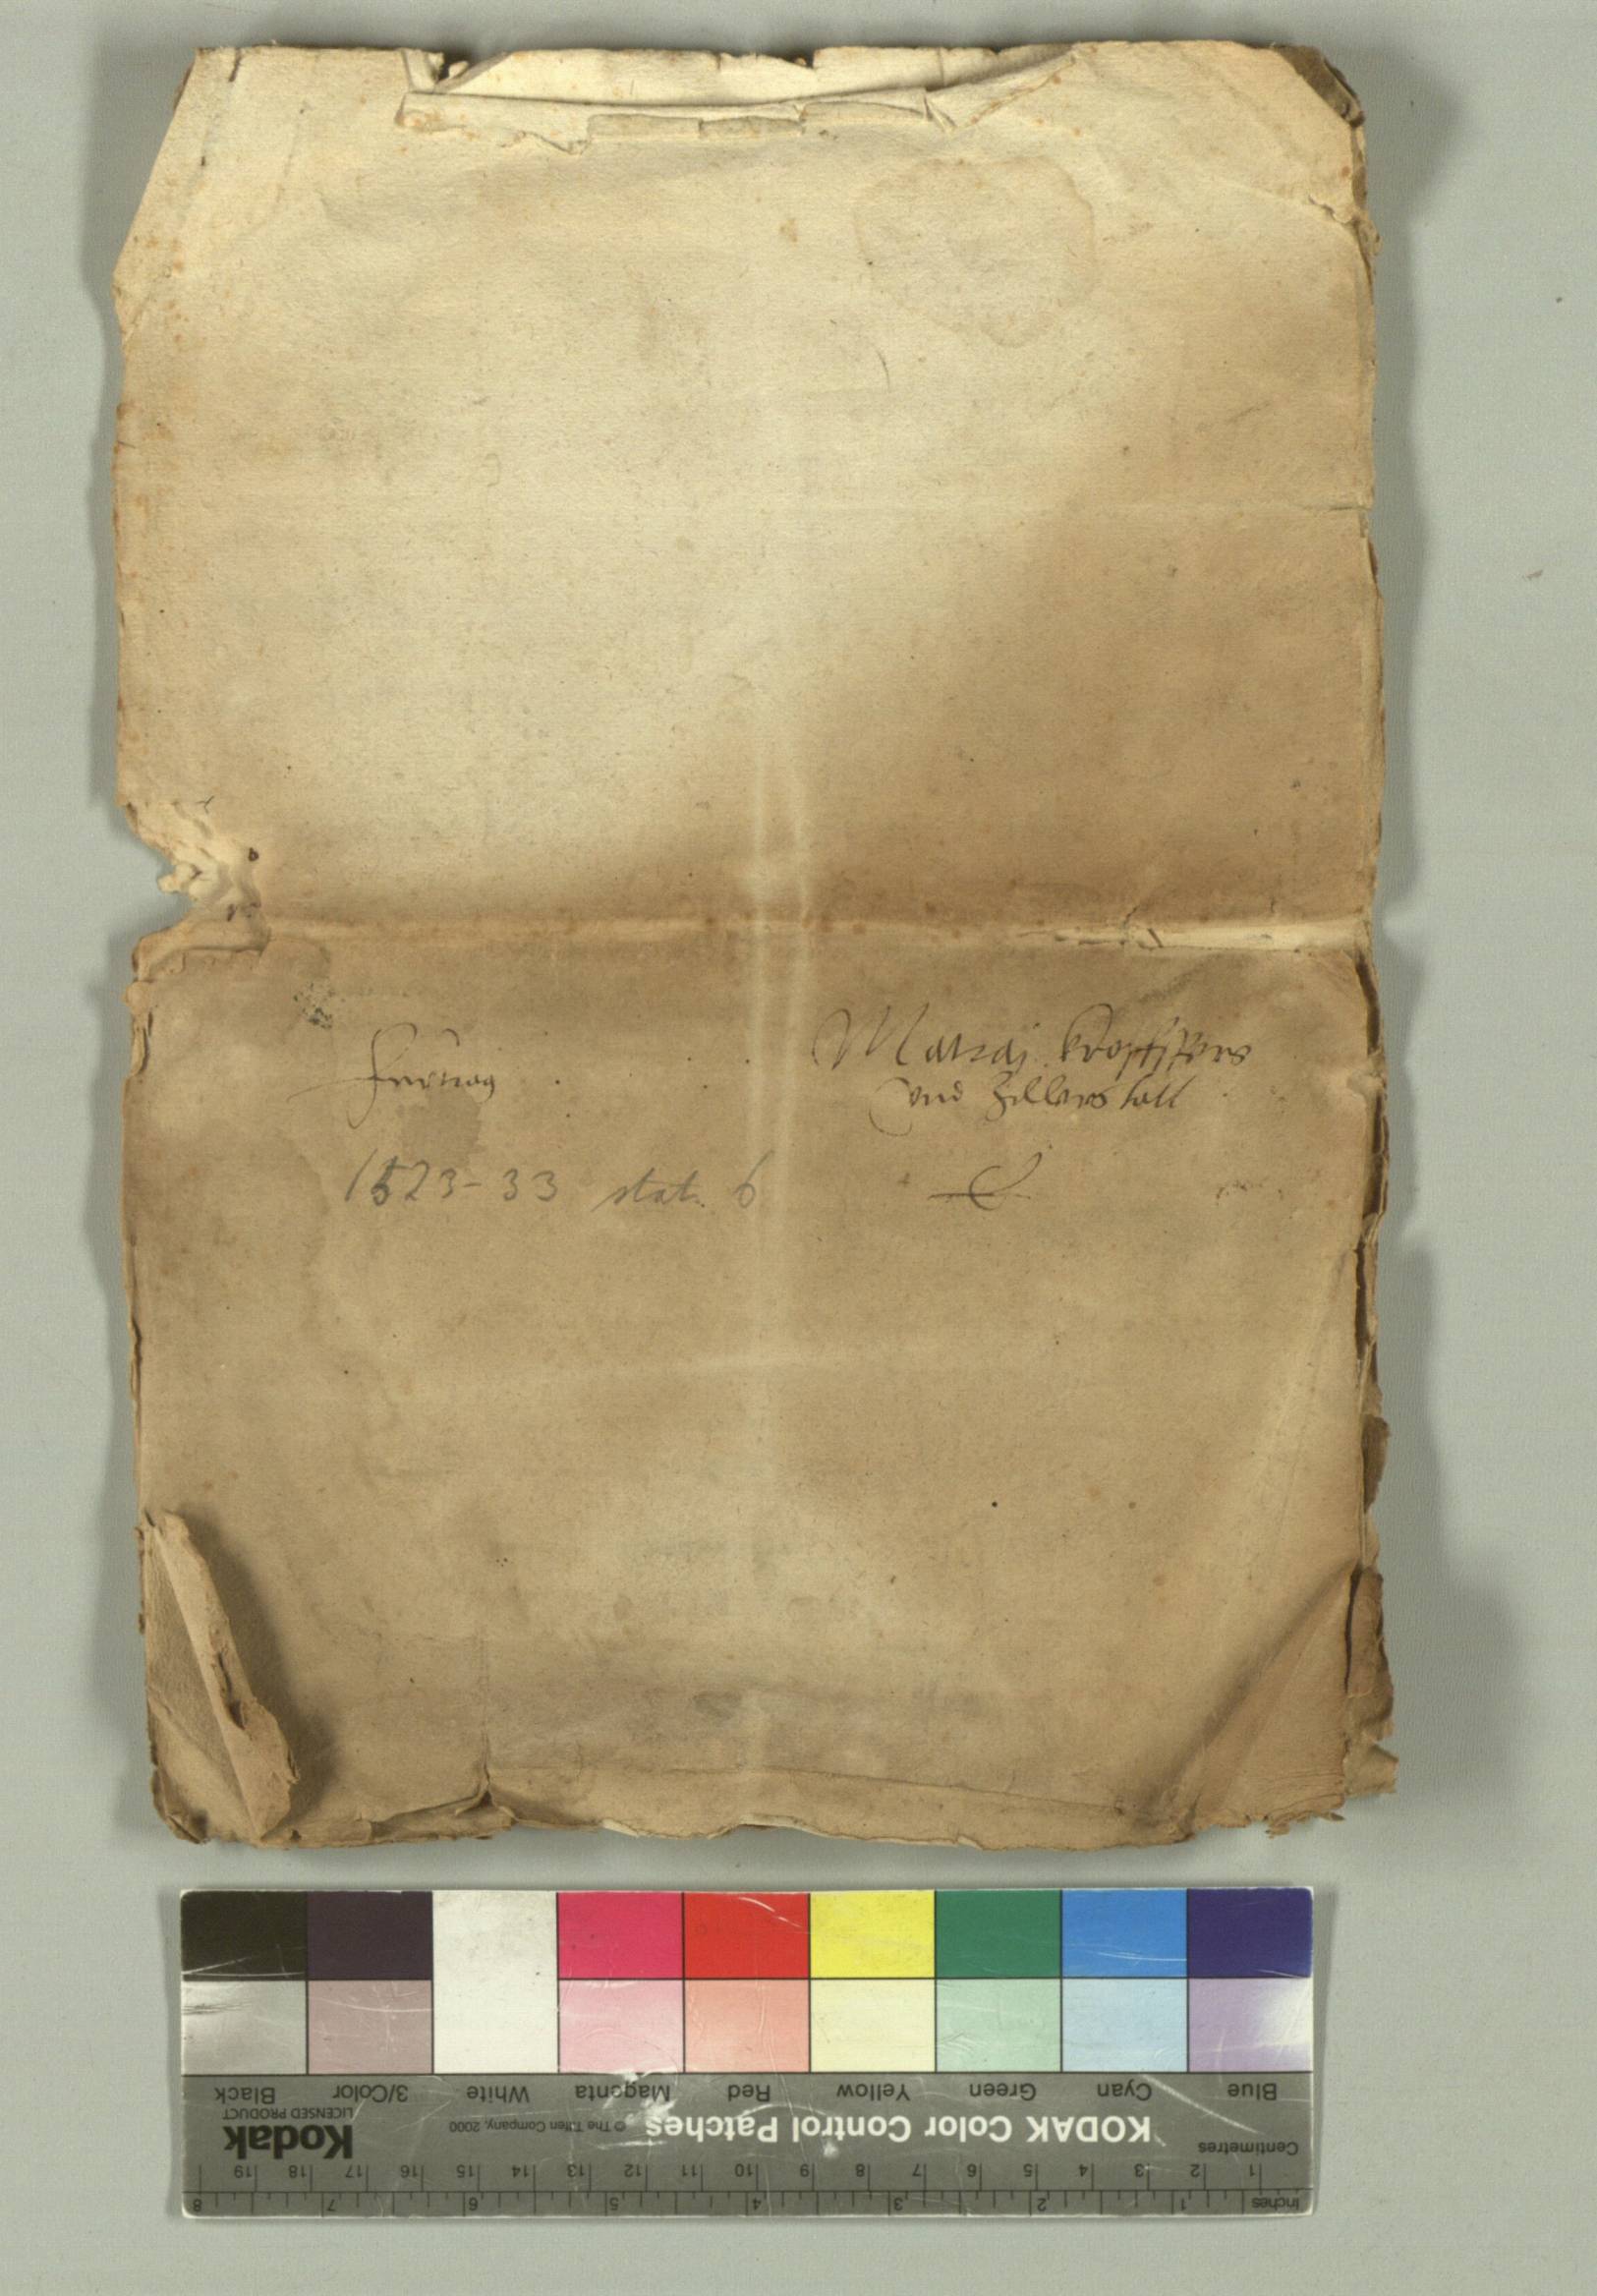 Furtrag
Matraj Kropffsperg
vnd Zillerstall
1523-33 stat. 6
Blue Cyan Green Yellow Red Magenta White 3/Color Black
KODAK Color Control Patches © The Tiffen Company, 2000 Kodak
LICENSED PRODUCT
Centimetres
1 2 3 4 5 6 7 8 9 10 11 12 13 14 15 16 17 18 19
Inches 1 2 3 4 5 6 7 8